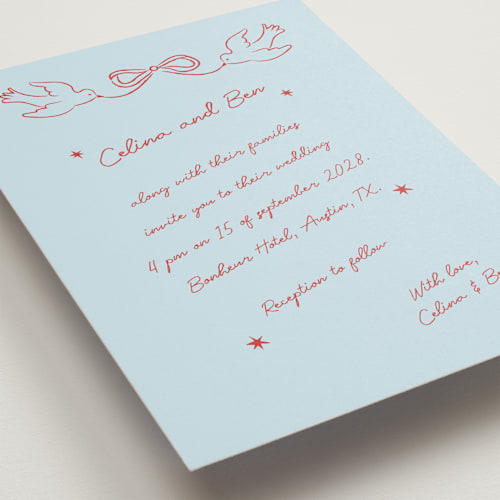 Celina and Ben
along with their families
invite you to their wedding
4 pm on 15 of september 2028.
Bonheur Hotel, Austin, TX.
Reception to follow
With love,
Celina &